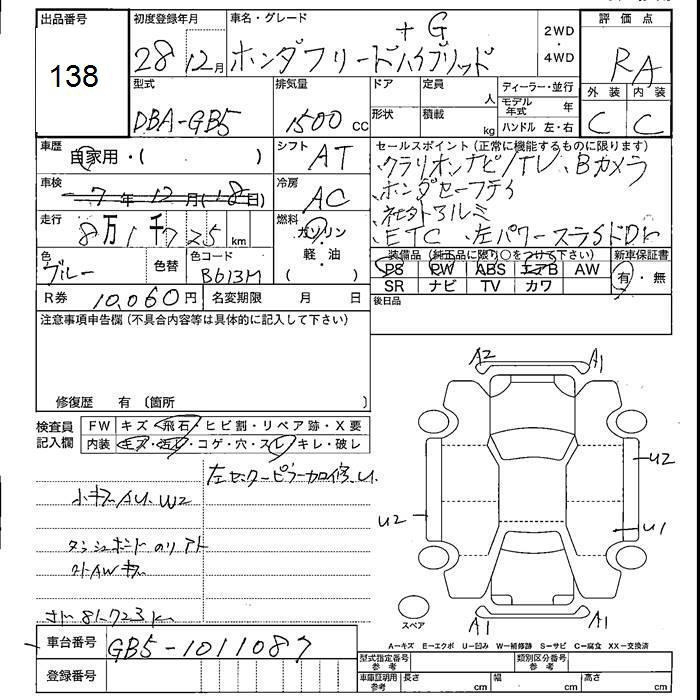 出品番号
138
初度登録年月
28 12月
車名・グレード
+G
ホンダフリードハイブリッド
2WD
・
4WD
評価点
RA
外装 内装
C C
型式
DBA-GB5
排気量
1500 cc
ドア
定員
人
形状
積載
kg
ディーラー・並行
モデル年式 年
ハンドル 左・右
車歴
自家用・( )
シフト
AT
車検
7年12月(18日)
冷房
AC
走行
8万1千725km
燃料
ガソリン
・
軽油
( )
色
ブルー
色替
色コード
B613M
R券 10,060円
名変期限 月 日
セールスポイント(正常に機能するものに限ります)
クラリオンナビ/TV、Bカメラ
、ホンダセーフティ
、社外アルミ
、ETC、左パワースライドDr
装備品(純正品に限り○をつけて下さい)
新車保証書
PS PW ABS エアB AW
SR ナビ TV カワ
有・無
後日品
注意事項申告欄(不具合内容等は具体的に記入して下さい)
修復歴 有 〔箇所 〕
検査員
記入欄
FW キズ・飛石・ヒビ割・リペア跡・X要
内装 キズ・汚レ・コゲ・穴・スレ・キレ・破レ
左センターピラー加修、U
小キズAU、W2
ダッシュボード のリアト
外AWキズ
メーター 81,723k
A2
A1
U2
U2
U1
A1
A1
スペア
A－キズ E－エクボ U－凹み W－補修跡 S－サビ C－腐食 XX－交換済
車台番号
GB5-1011087
登録番号
型式指定番号
参考
類別区分番号
参考
車庫証明用
参考
長さ cm
幅 cm
高さ cm